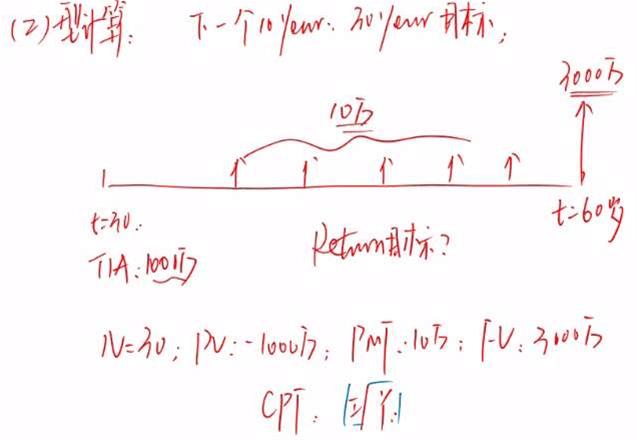 (2) 型计算: 下一个10 year: 30 year 目标;
3000万
10万
t=30: t=60岁
TIA: 1000万 Return目标?
N=30; PV: -1000万; PMT: 10万; FV: 3000万
CPT: I/Y